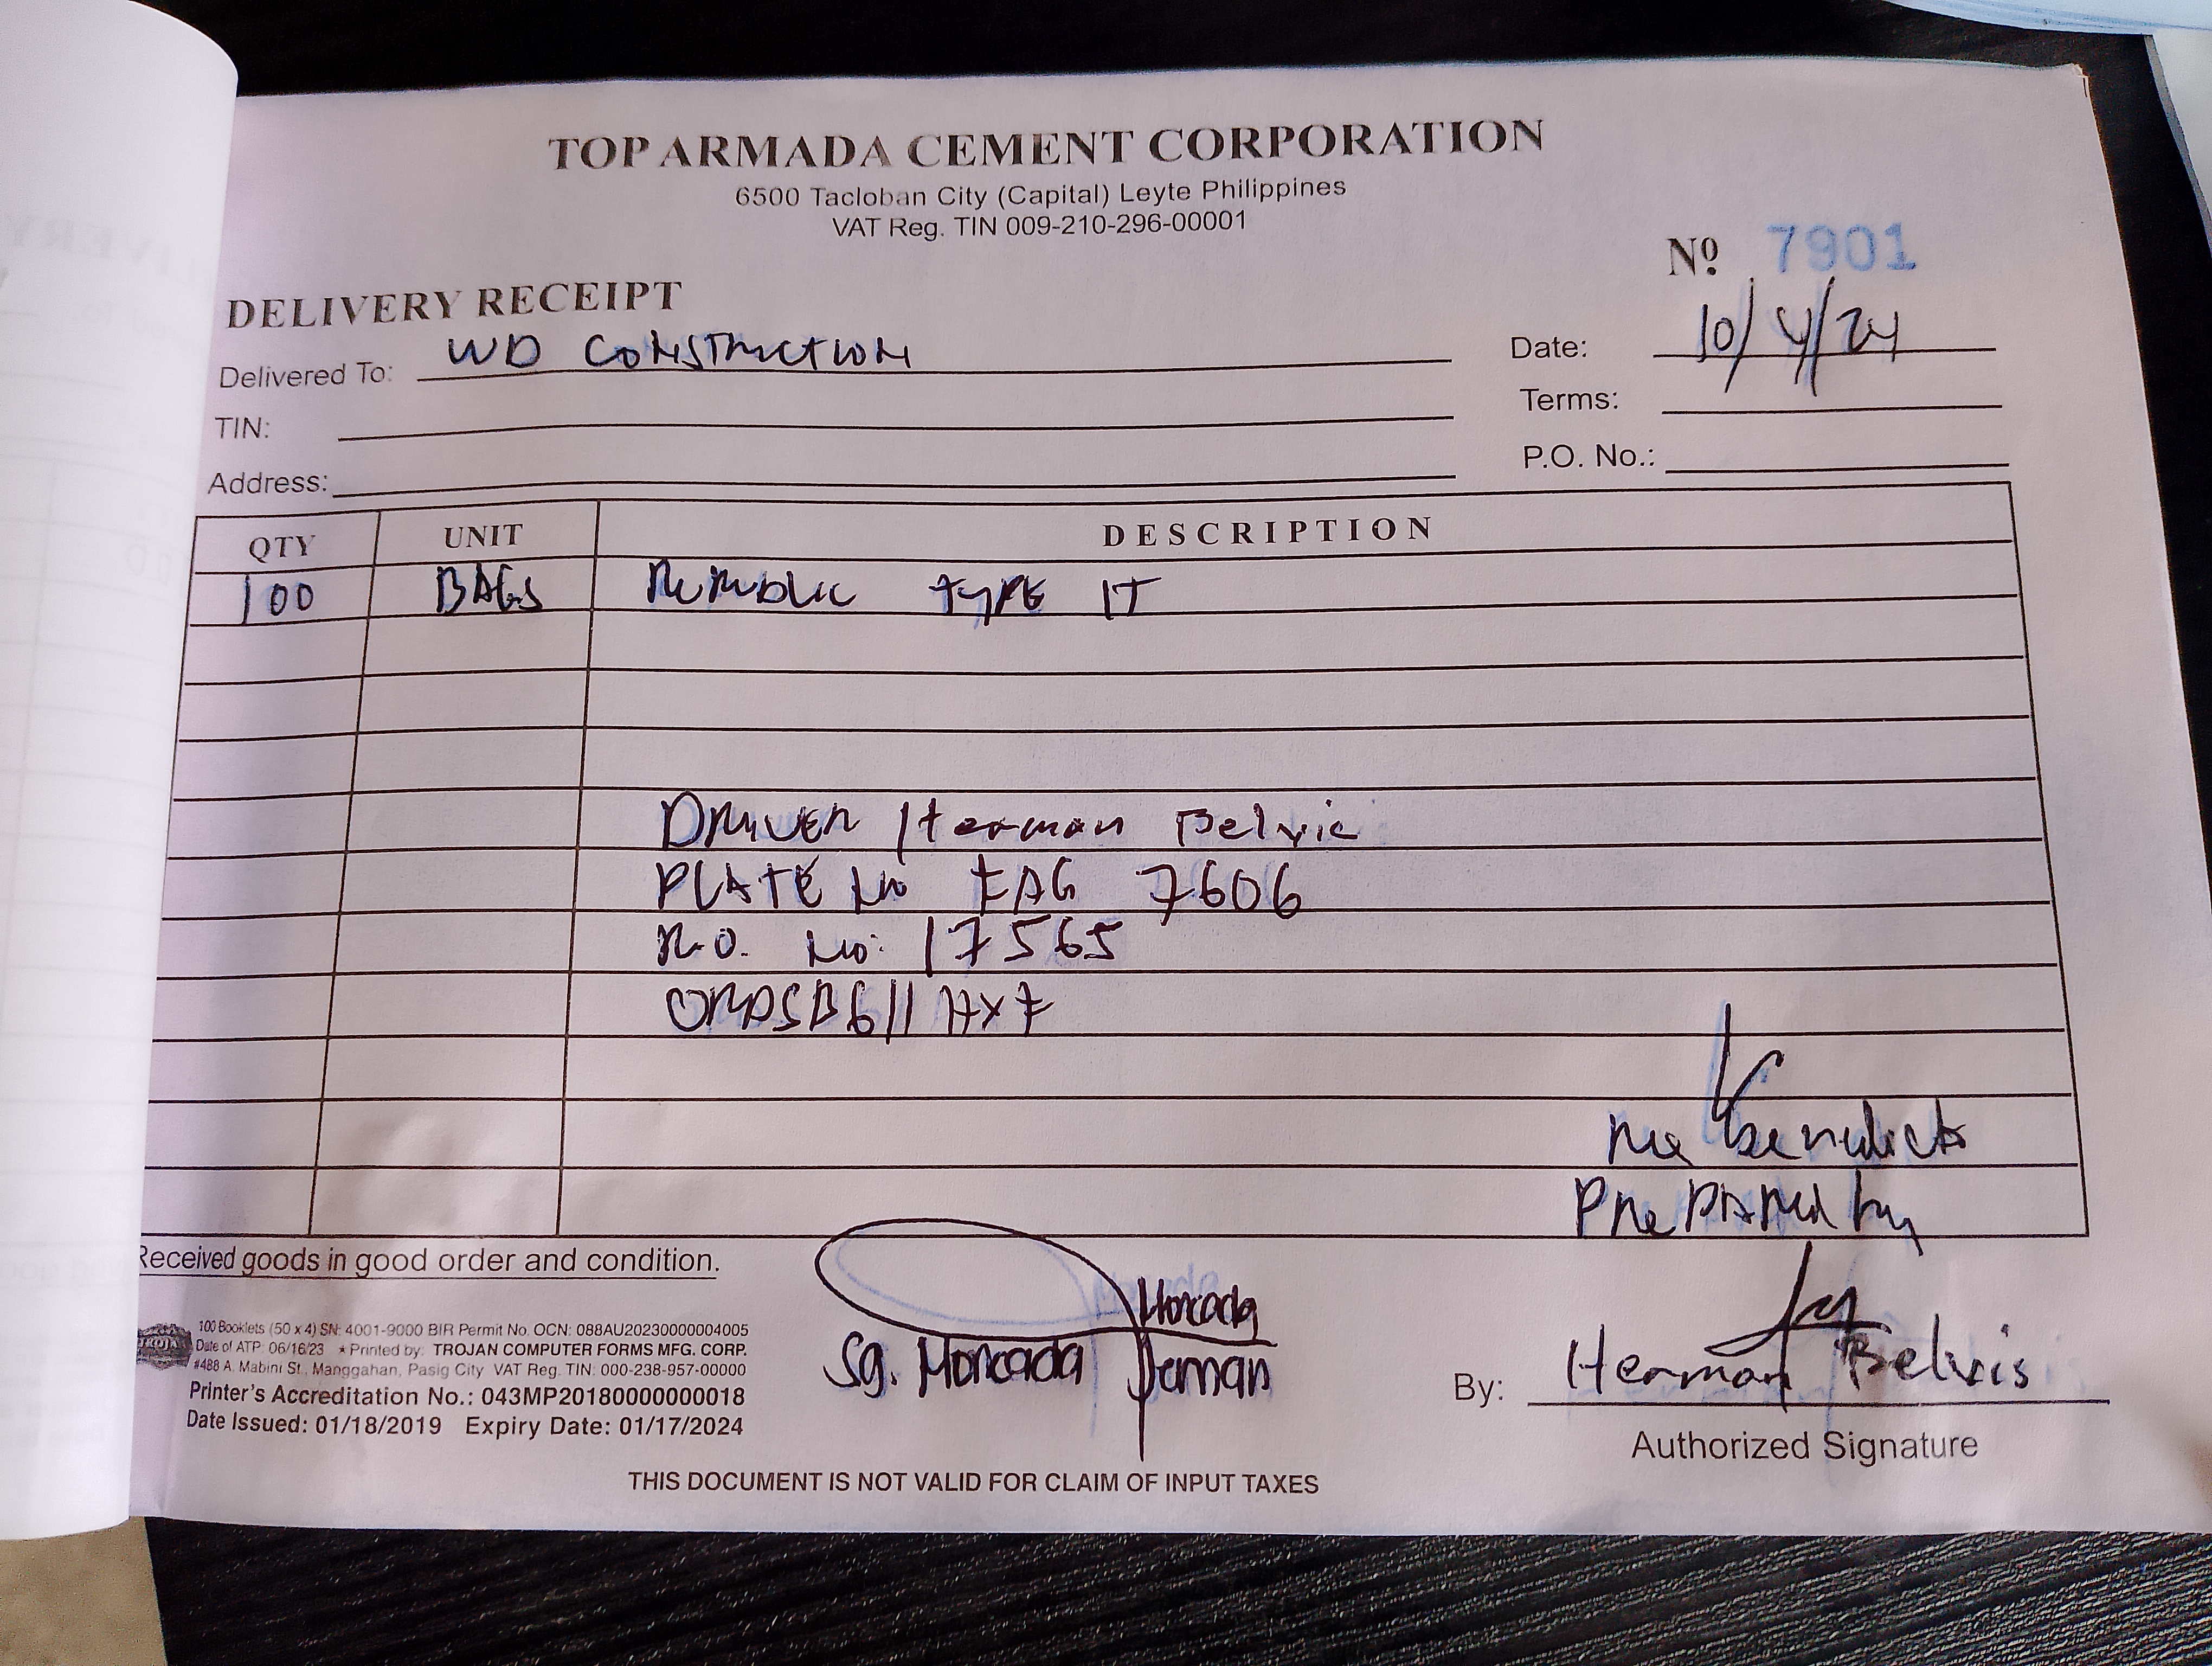 TOP ARMADA CEMENT CORPORATION
6500 Tacloban City (Capital) Leyte Philippines
VAT Reg. TIN 009-210-296-00001
Nº 7901
DELIVERY RECEIPT
Delivered To: WD CONSTRUCTION
Date: 10/4/24
TIN:
Terms:
Address:
P.O. No.:
QTY UNIT DESCRIPTION
100 BAGS REPUBLIC TYPE IT
DRIVER Herman Belvis
PLATE No 7606
R.O. No: 17565
Prepared by
Received goods in good order and condition.
Moncada
Sg. Moncada
By: Herman Belvis
Authorized Signature
100 Booklets (50 x 4) SN: 4001-9000 BIR Permit No. OCN: 088AU20230000004005
Date of ATP: 06/16/23 ★ Printed by: TROJAN COMPUTER FORMS MFG. CORP.
#488 A. Mabini St., Manggahan, Pasig City VAT Reg. TIN: 000-238-957-00000
Printer's Accreditation No.: 043MP20180000000018
Date Issued: 01/18/2019 Expiry Date: 01/17/2024
THIS DOCUMENT IS NOT VALID FOR CLAIM OF INPUT TAXES